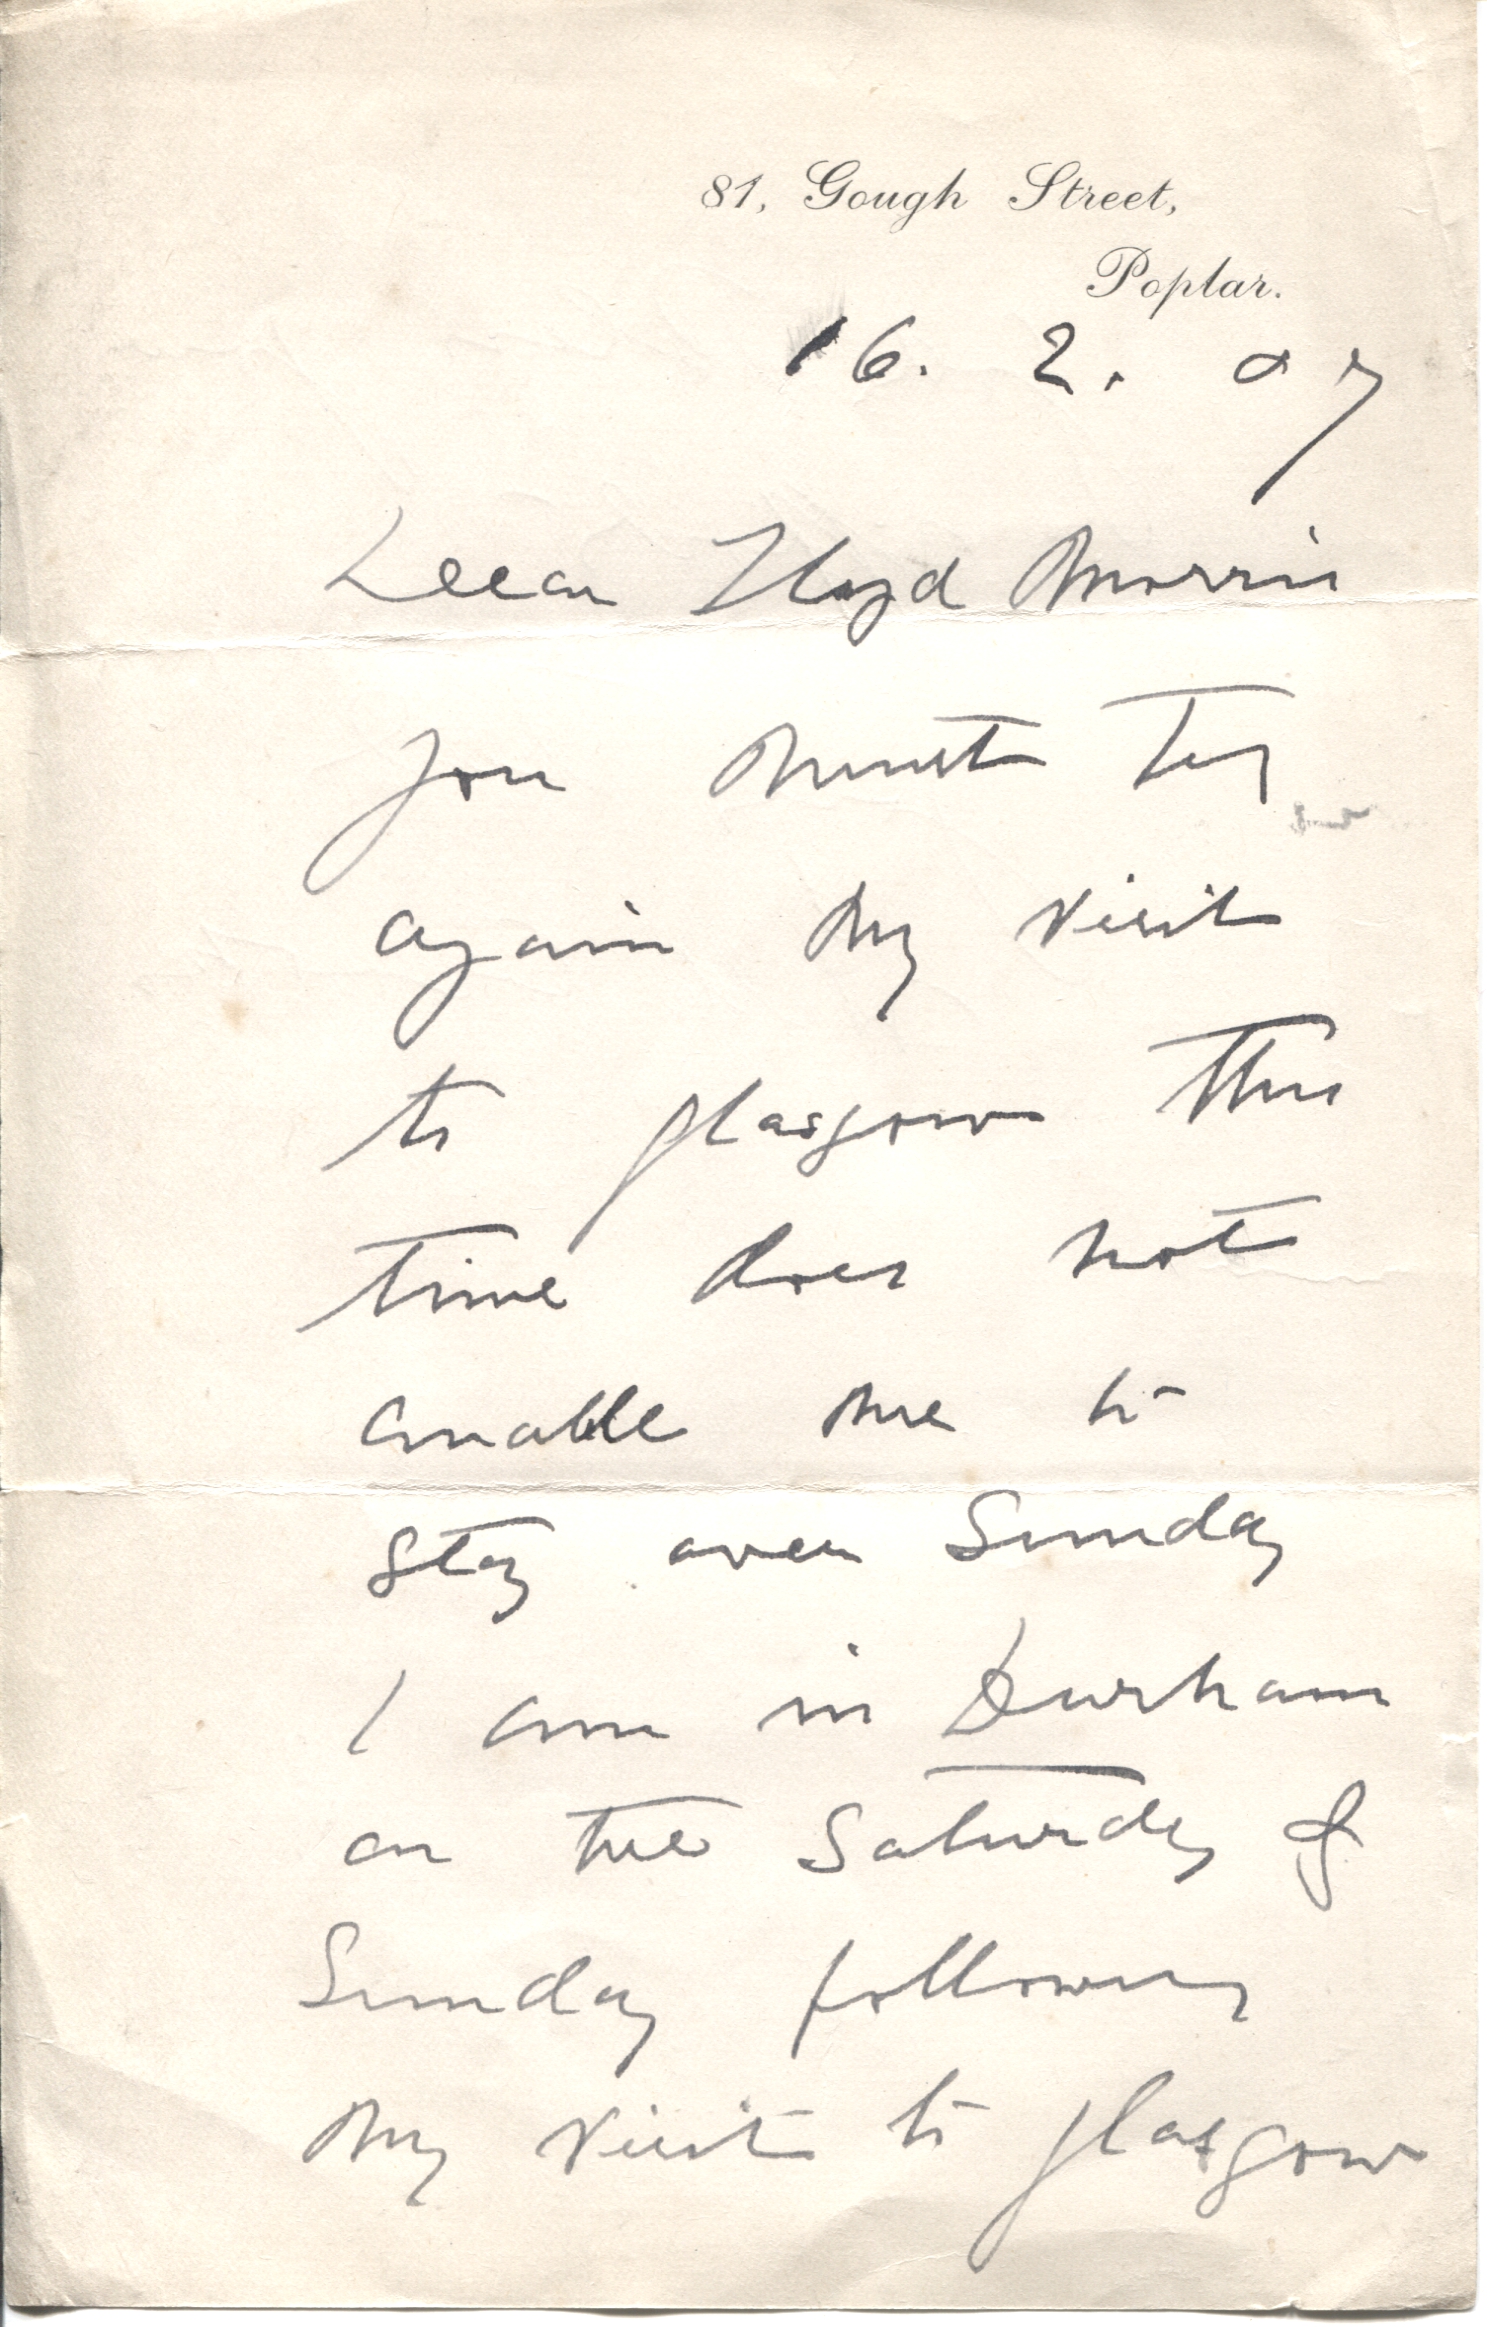 81, Gough Street,
Poplar.
16. 2. 07
Dear Lloyd Morris
You must try
again my visit
to Glasgow this
time does not
enable me to
stay over Sunday
I am in Durham
on the Saturday &
Sunday following
my visit to Glasgow